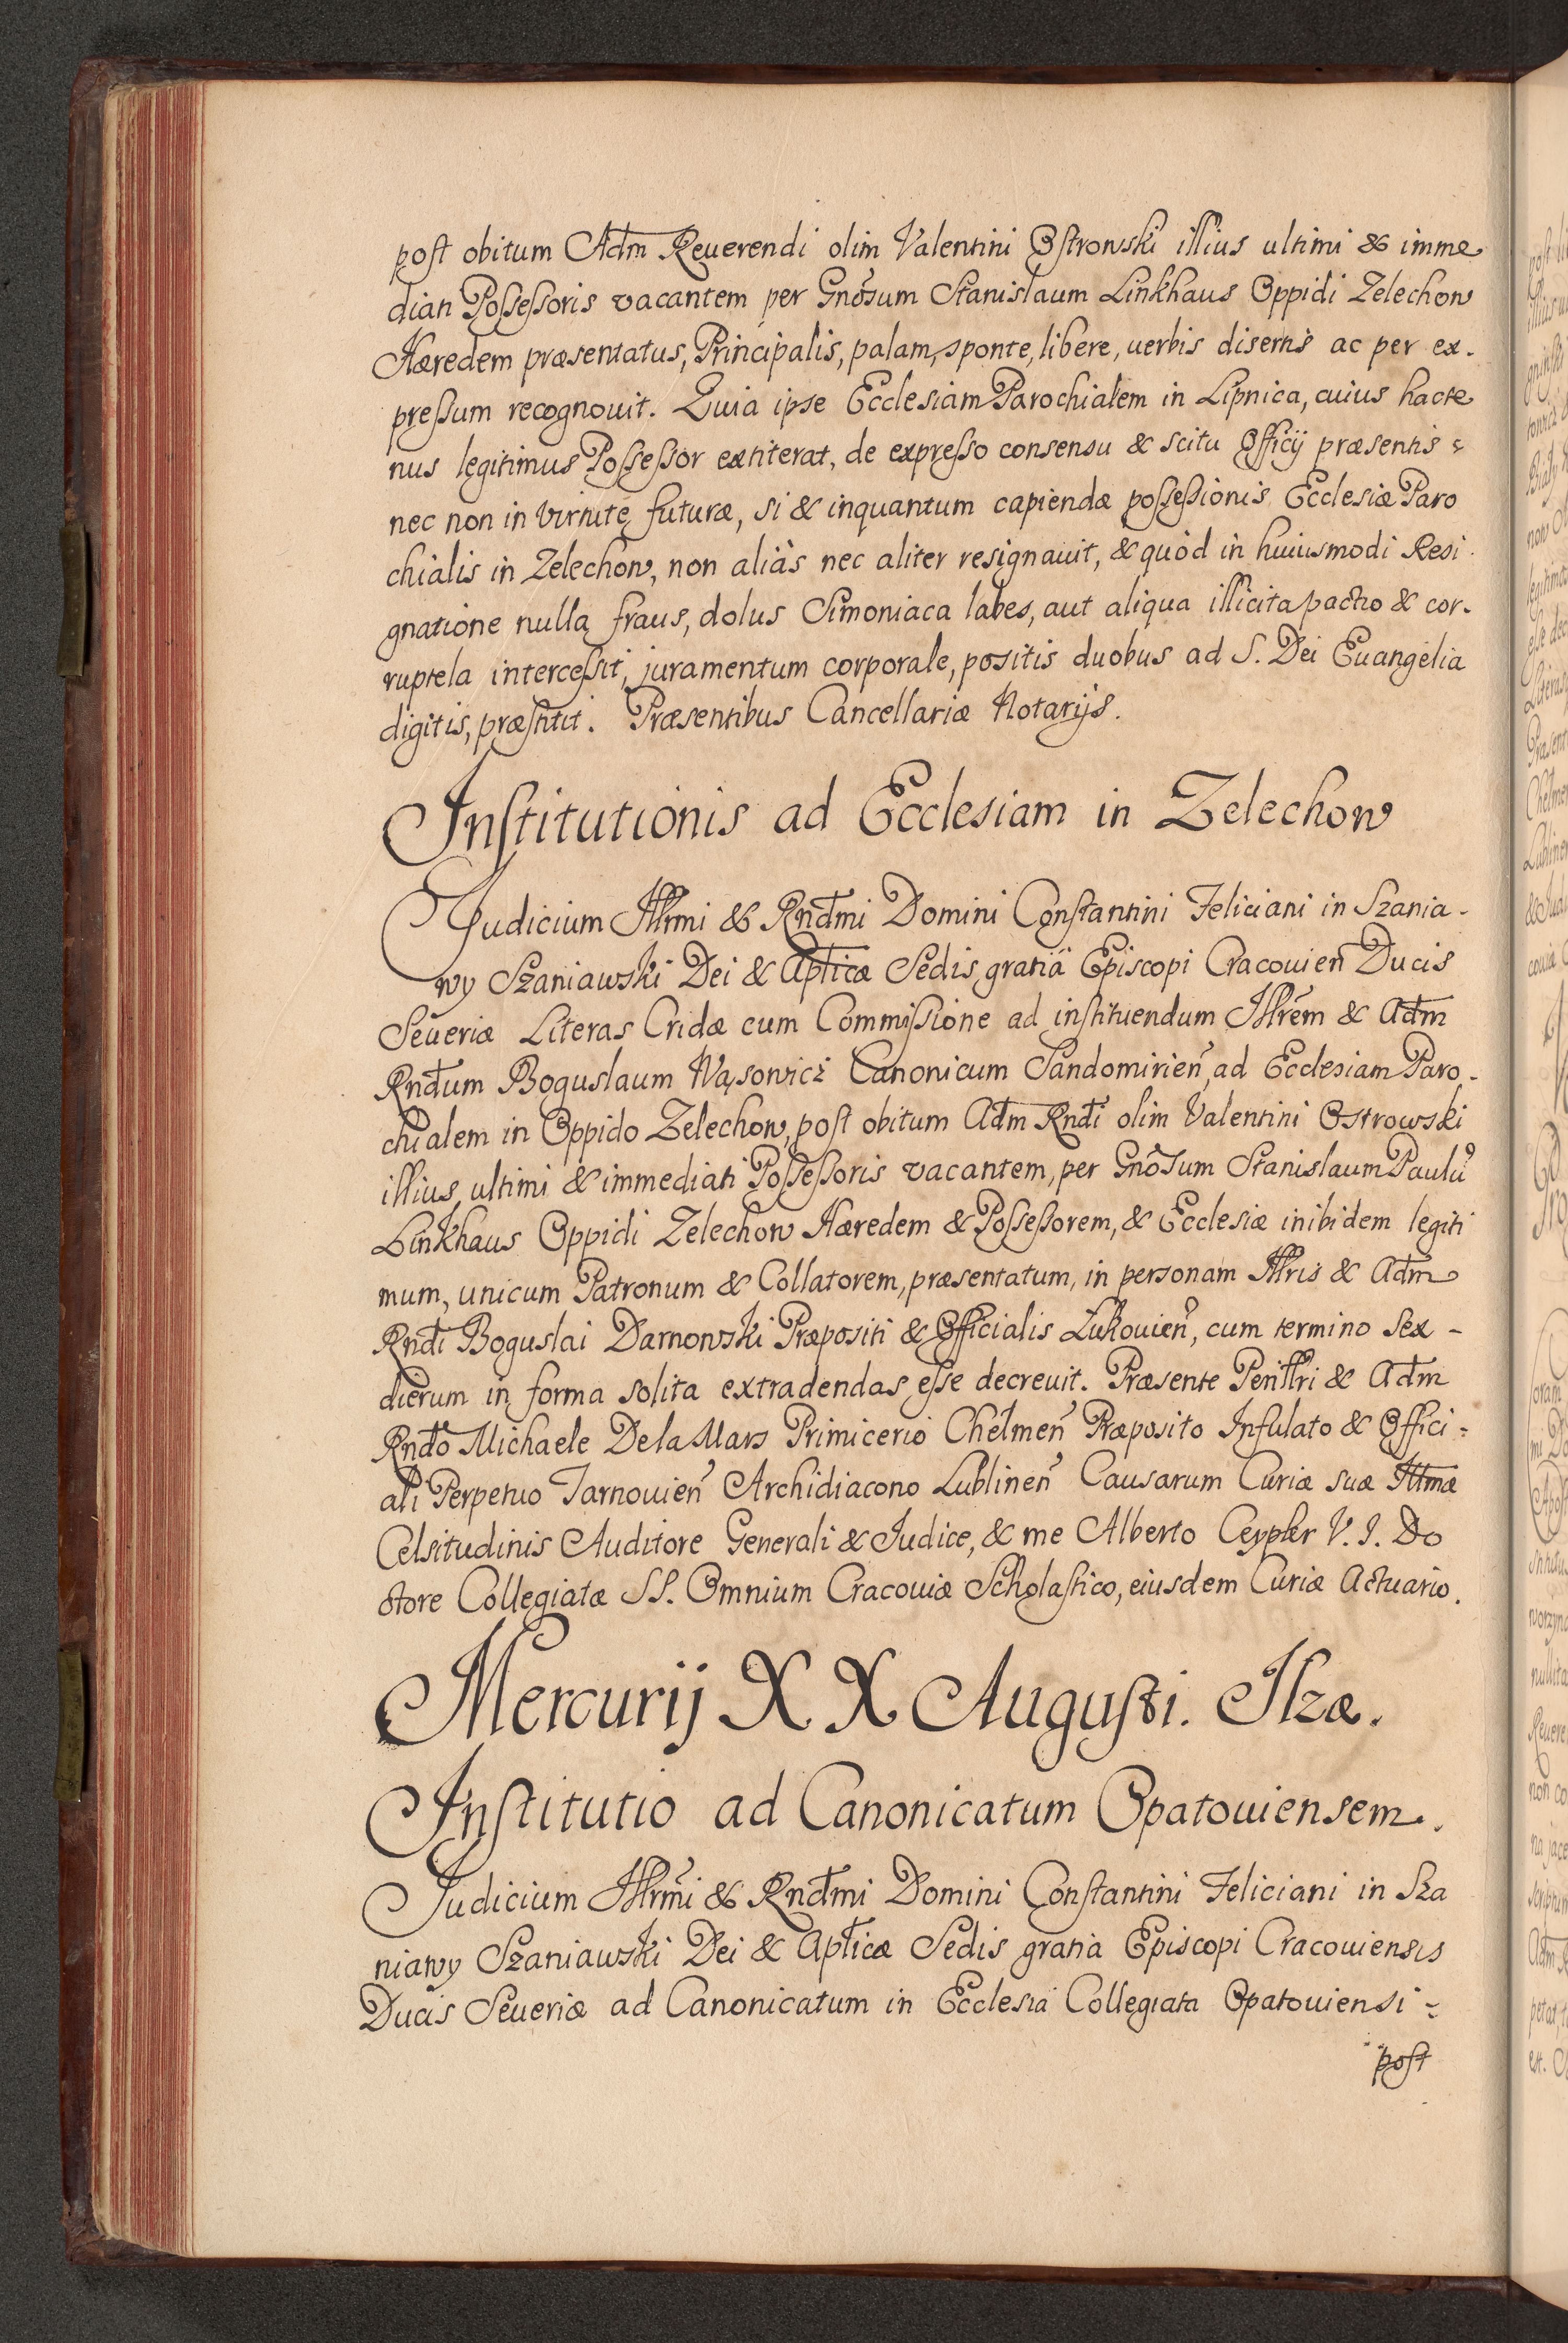 post obitum Adm Reuerendi olim Valentini Ostrowski illius ultimi & imme
diati Possessoris vacantem per Gnosum Stanislaum Linkhaus Oppidi Zelechow
Hæredem præsentatus, Principalis, palam, sponte, libere, uerbis disertis ac per ex-
pressum recognouit. Quia ipse Ecclesiam Parochialem in Lipnica, cuius hacte
nus legitimus Possessor extiterat, de expresso consensu & scitu Officij præsentis
nec non in virtute futuræ, si & inquantum capiendæ possessionis Ecclesiæ Paro
chialis in Zelechow, non aliàs nec aliter resignauit, & quòd in huiusmodi Resi-
gnatione nulla fraus, dolus Simoniaca labes, aut aliqua illicita pactio & cor-
ruptela intercessit, juramentum corporale, positis duobus ad S. Dei Euangelia
digitis, præstitit. Præsentibus Cancellariæ Notarijs.
Institutionis ad Ecclesiam in Zelechow
Judicium Illrmi & Rndmi Domini Constantini Feliciani in Szania-
wy Szaniawski Dei & Apticæ Sedis gratiâ Episcopi Cracouien Ducis
Seueriæ Literas Cridæ cum Commissione ad instituendum Illrem & Adm
Rndum Boguslaum Wąsowicz Canonicum Sandomirien, ad Ecclesiam Paro-
chialem in Oppido Zelechow, post obitum Adm Rndi olim Valentini Ostrowski
illius ultimi & immediati Possessoris vacantem, per Gnosum Stanislaum Paulu
Linkhaus Oppidi Zelechow Hæredem & Possessorem, & Ecclesiæ inibidem legiti
mum, unicum Patronum & Collatorem, præsentatum, in personam Illris & Adm
Rndi Boguslai Darnowski Præpositi & Officialis Lukouien, cum termino sex-
dierum in forma solita extradendas esse decreuit. Præsente Perillri & Adm
Rndo Michaele De la Mars Primicerio Chelmen Præposito Infulato & Offici-
ali Perpetuo Tarnouien Archidiacono Lublinen Causarum Curiæ suæ Illmæ
Celsitudinis Auditore Generali & Judice, & me Alberto Ceypler V. J. Do
ctore Collegiatæ SS. Omnium Cracouiæ Scholastico, eiusdem Curiæ Actuario.
Mercurij XX Augusti. Ilzæ.
Institutio ad Canonicatum Opatouiensem.
Judicium Illrmi & Rndmi Domini Constantini Feliciani in Sza
niawy Szaniawski Dei & Apticæ Sedis gratia Episcopi Cracouiensis
Ducis Seueriæ ad Canonicatum in Ecclesia Collegiata Opatouiensi
post